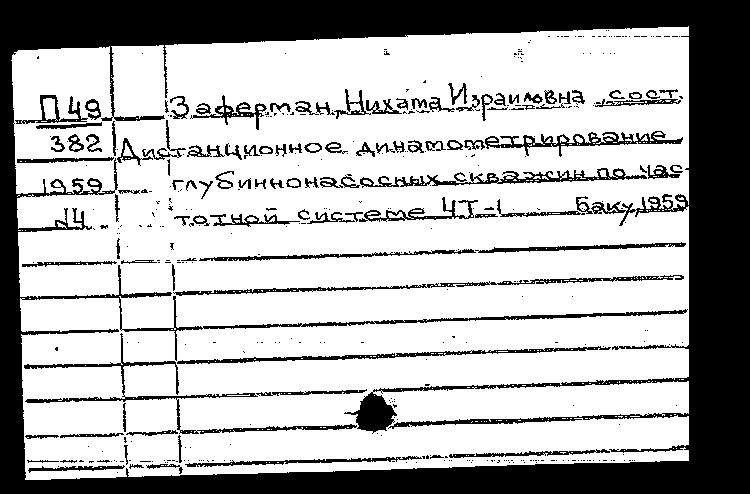 П49 Заферман, Нихама Израиловна, сост.
382 Дистанционное динамометрирование
1959 глубиннонасосных скважин по час-
14 тотной системе ЧТ-1 Баку, 1959